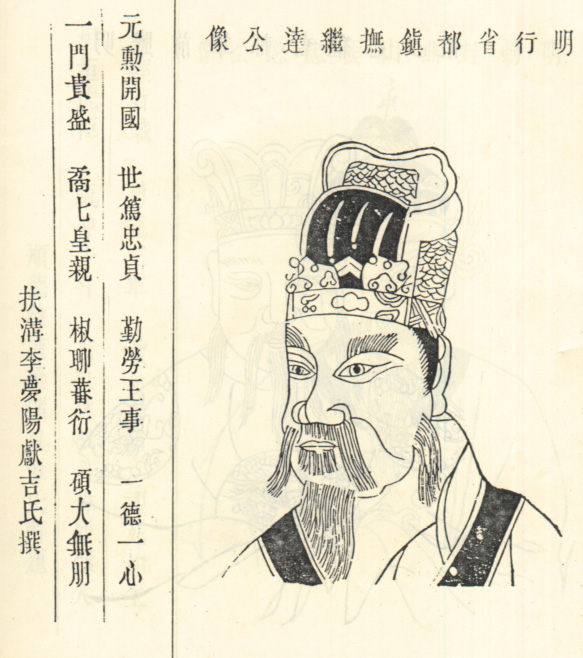 明行省都鎮撫繼達公像
元勲開國 世篤忠貞 勤勞王事 一德一心
一門貴盛 喬七皇親 椒聊蕃衍 碩大無朋
扶溝李夢陽獻吉氏撰